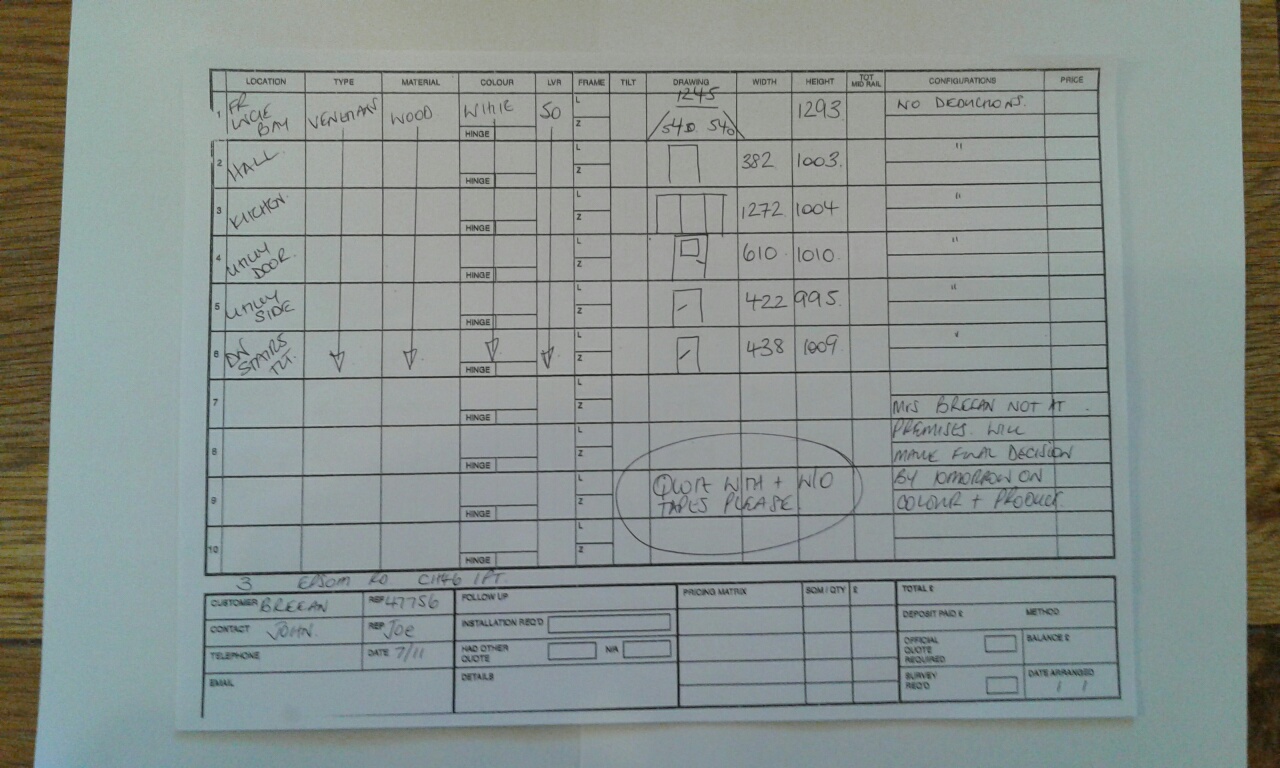 LOCATION TYPE MATERIAL COLOUR LVR FRAME TILT DRAWING WIDTH HEIGHT TOT MID RAIL CONFIGURATIONS PRICE
1 FR BAY VENETIAN WOOD WHITE 50 L 1245 1293 NO DEDUCTIONS.
HINGE Z 540 540
2 HALL L 382 1003. "
HINGE Z
3 KITCHEN. L 1272 1004 "
HINGE Z
4 UTILITY DOOR. L 610 1010. "
HINGE Z
5 UTILITY SIDE L 422 995. "
HINGE Z
6 DN STAIRS TLT. L 438 1009. "
HINGE Z
7 L
HINGE Z MRS BREEAN NOT AT
8 L PREMISES. WILL
HINGE Z MAKE FINAL DECISION
9 L QUOTE WITH + W/O BY TOMORROW ON
HINGE Z TAPES PLEASE COLOUR + PRODUCT.
10 L
HINGE Z
3 EPSOM RD. CH46 1PT.
CUSTOMER BREEAN REF 47756 FOLLOW UP PRICING MATRIX SQM / QTY £ TOTAL £
CONTACT JOHN. REP JOE INSTALLATION REQ'D DEPOSIT PAID £ METHOD
TELEPHONE DATE 7/11 HAD OTHER QUOTE N/A OFFICIAL QUOTE REQUIRED BALANCE £
EMAIL DETAILS SURVEY REQ'D DATE ARRANGED
/ /